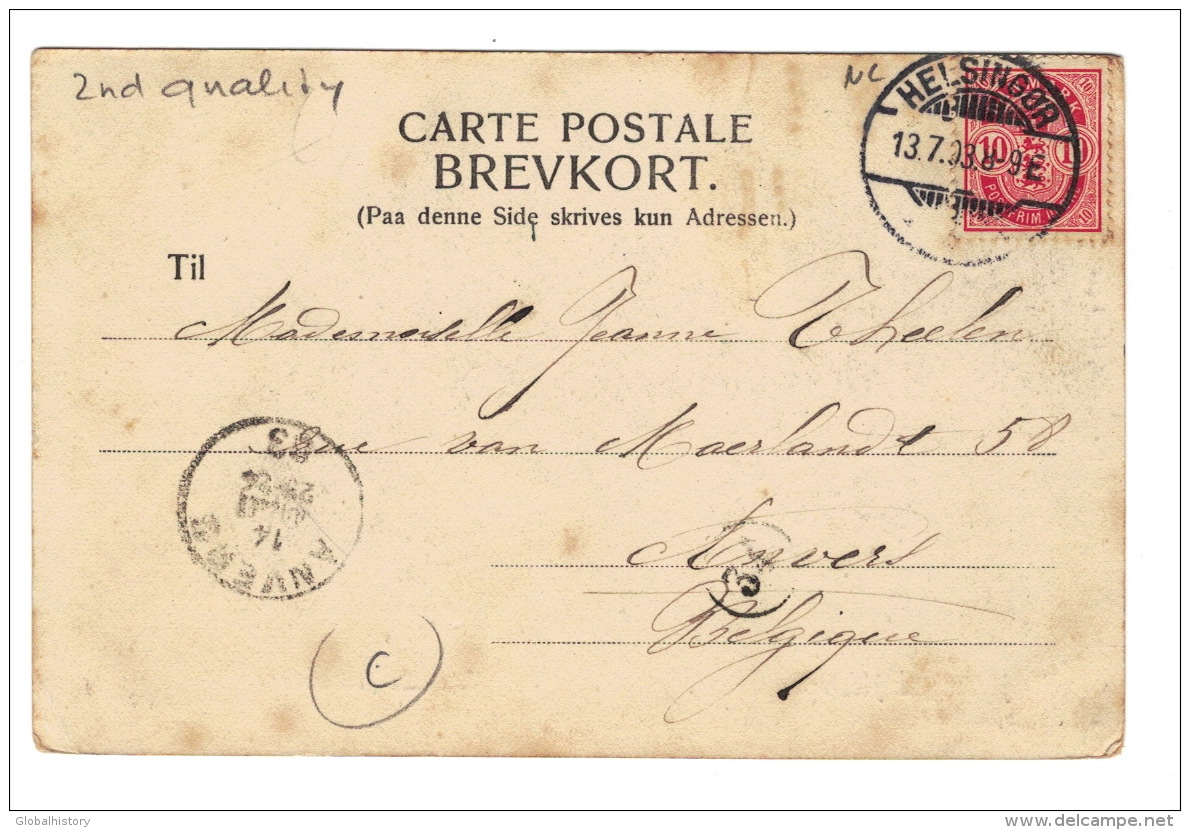 2nd quality
NC
CARTE POSTALE
BREVKORT.
(Paa denne Side skrives kun Adressen.)
HELSINGØR
13.7.03.8-9E
10 10
Til
Mademoiselle Jeanne Theelen
Rue van Maerlandt 58
Anvers
Belgique
ANVERS
14
03
C
Globalhistory
www.delcampe.net